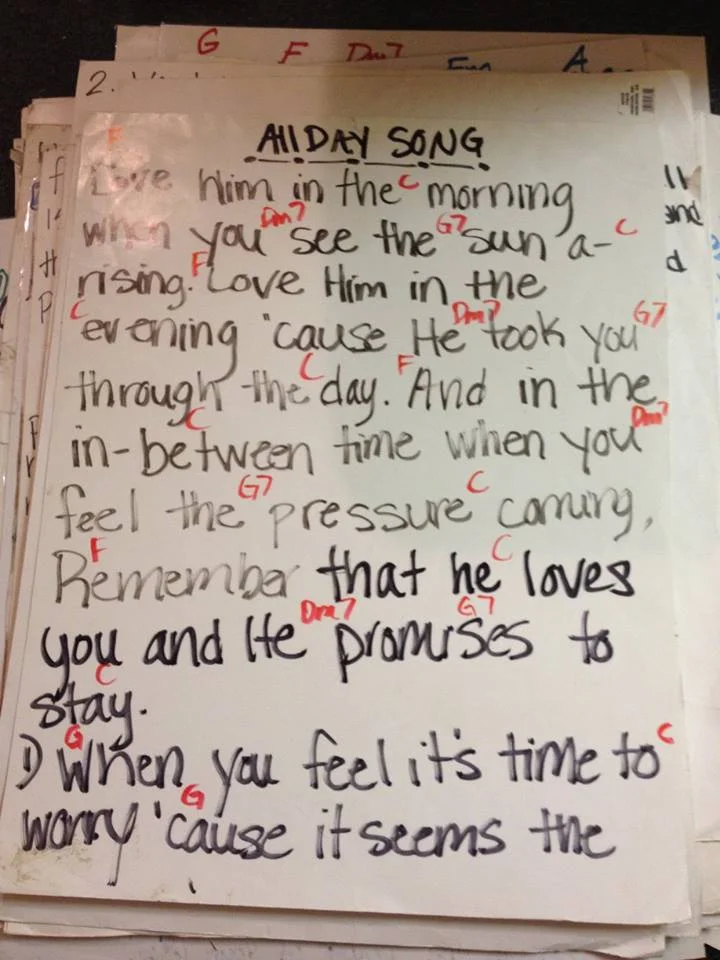 G F Dm7
2.
All DAY SONG
F
Love Him in the C morning
Dm7 G7 C
when you see the sun a-
F
rising. Love Him in the
C Dm7 G7
evening 'cause He took you
C F
through the day. And in the
C Dm7
in-between time when you
G7 C
feel the pressure coming,
F C
Remember that he loves
Dm7 G7
you and He promises to
C
stay.
G C
1) When you feel it's time to
G
worry 'cause it seems the